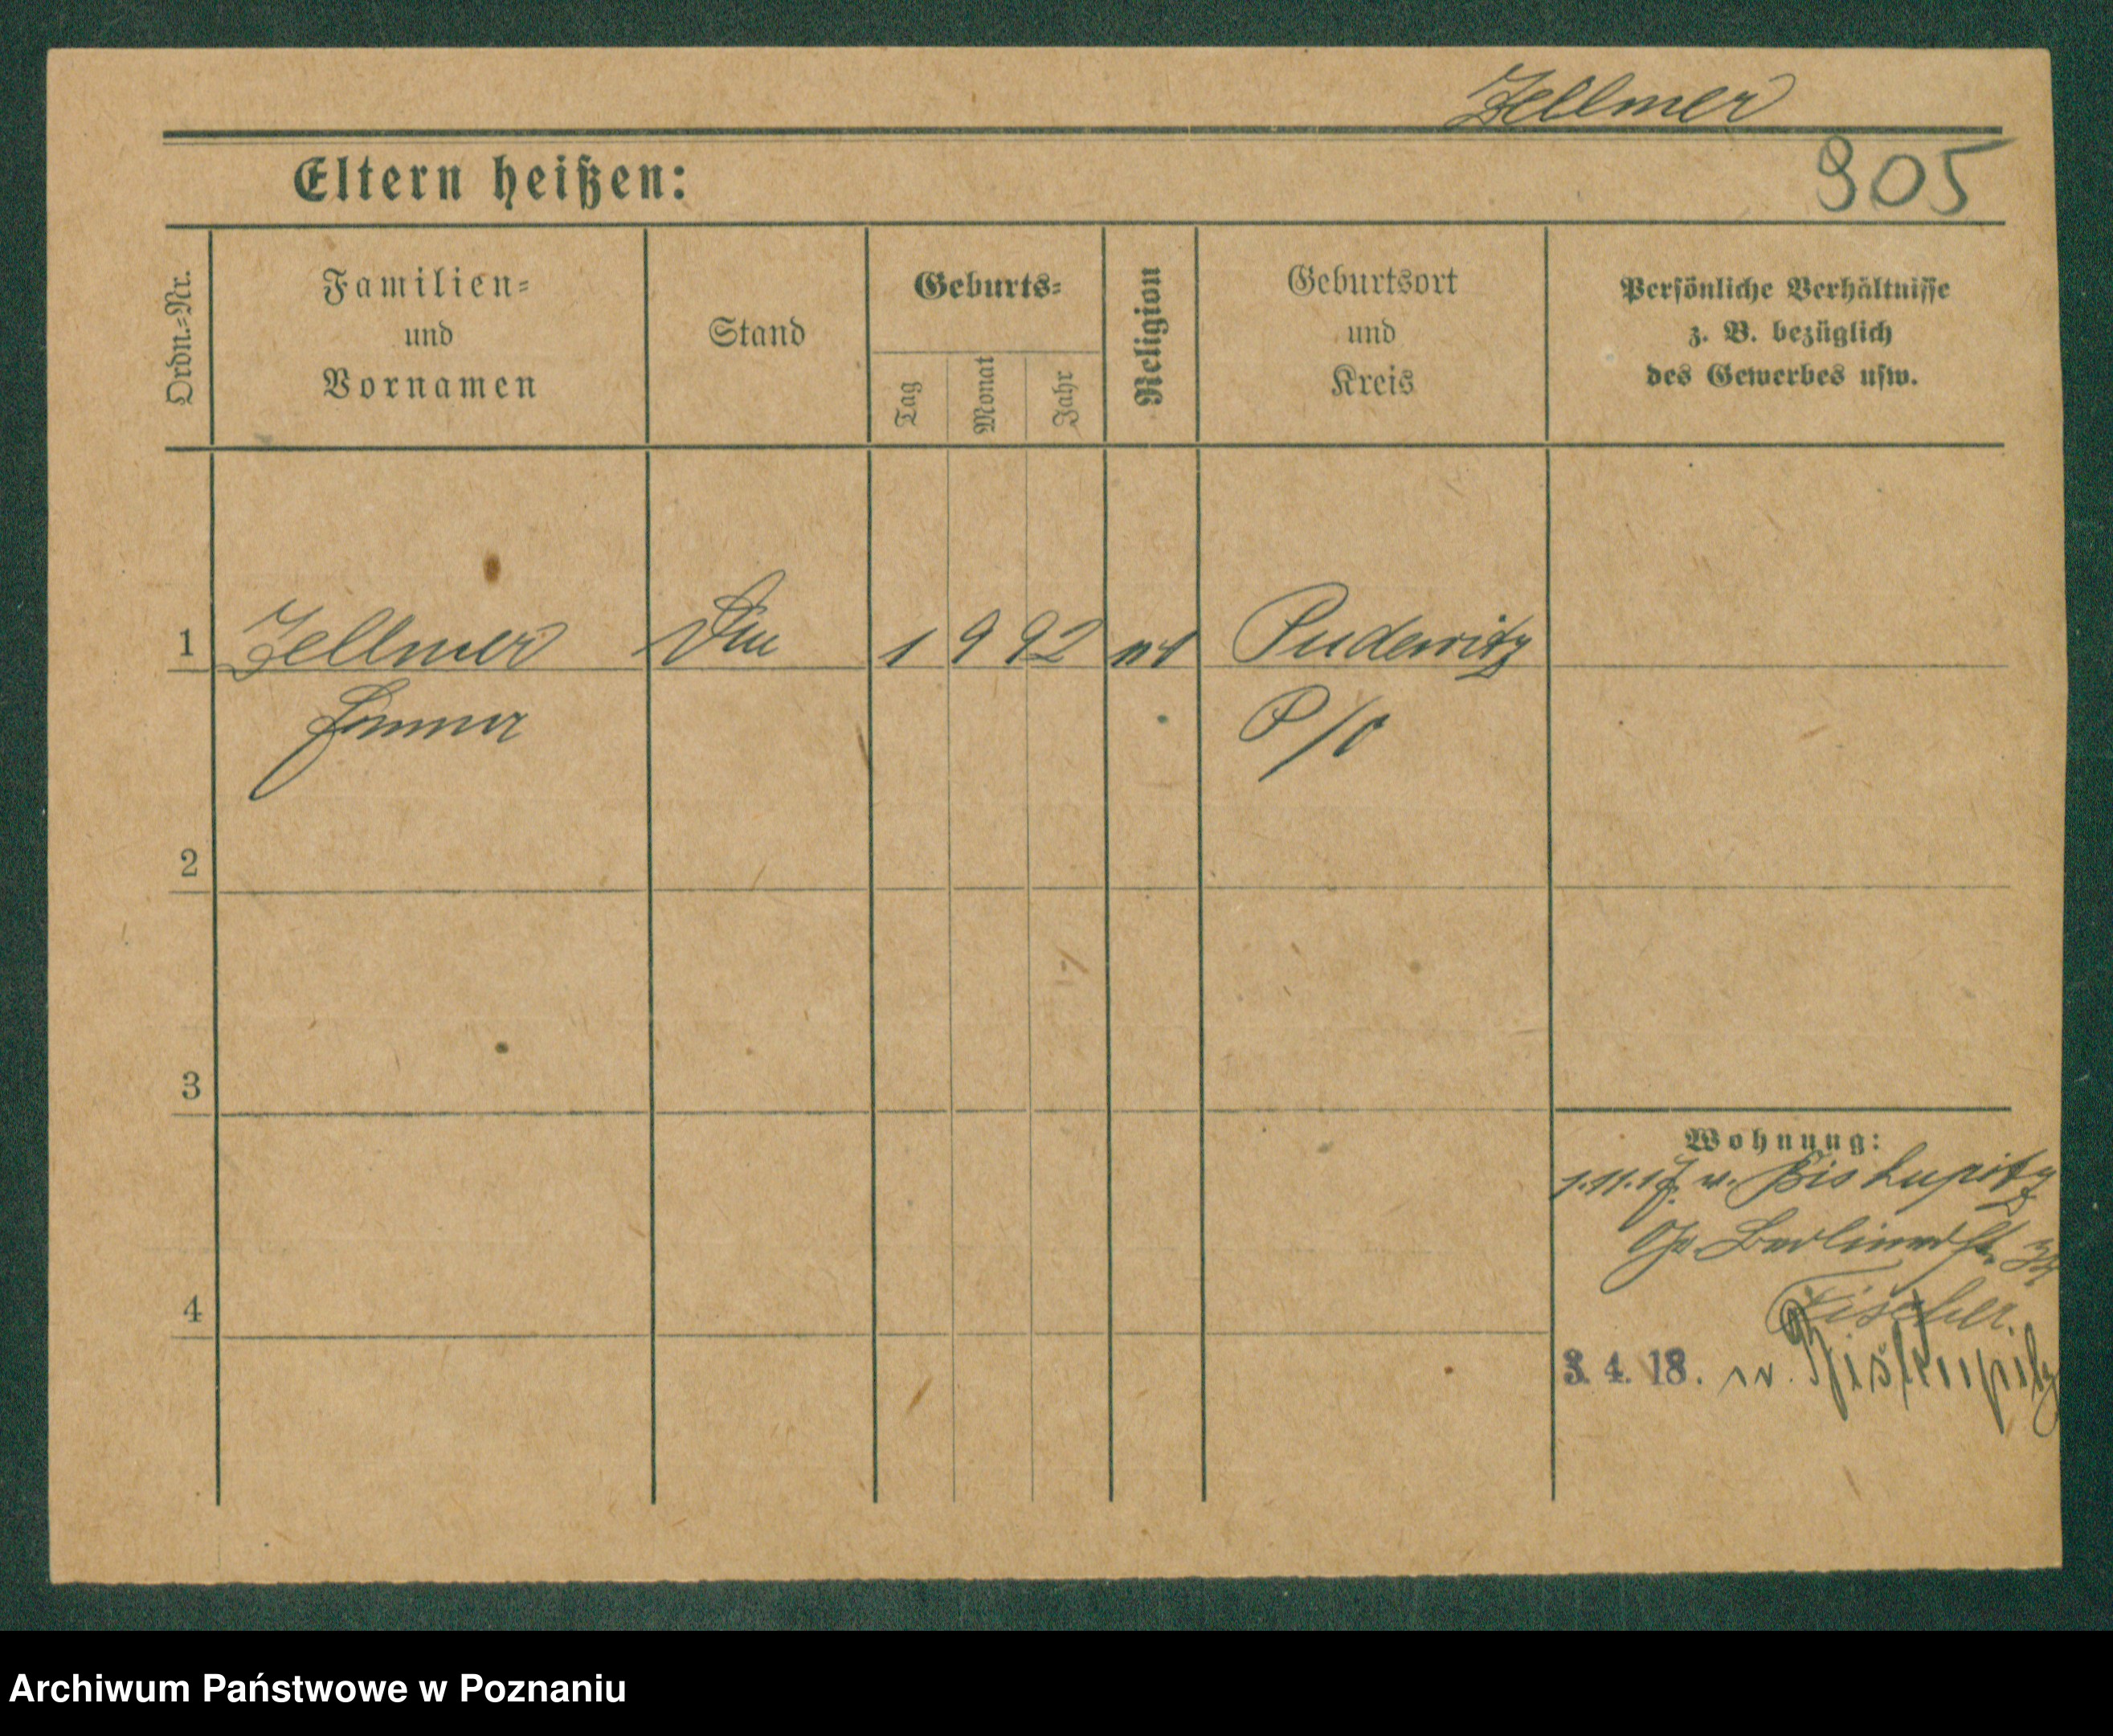 Zellmer
Eltern heißen:
305
Ordn.=Nr.
Familien=
und
Vornamen
Stand
Geburts=
Tag
Monat
Jahr
Religion
Geburtsort
und
Kreis
Persönliche Verhältnisse
z. B. bezüglich
des Gewerbes usw.
1 Zellmer 1 9 92 Pudewitz
P/O
2
3
Wohnung:
1.11.17. n. Biskupitz
Berlinerst.
4
Fischer.
3. 4. 18. n. Biskupitz
Archiwum Państwowe w Poznaniu